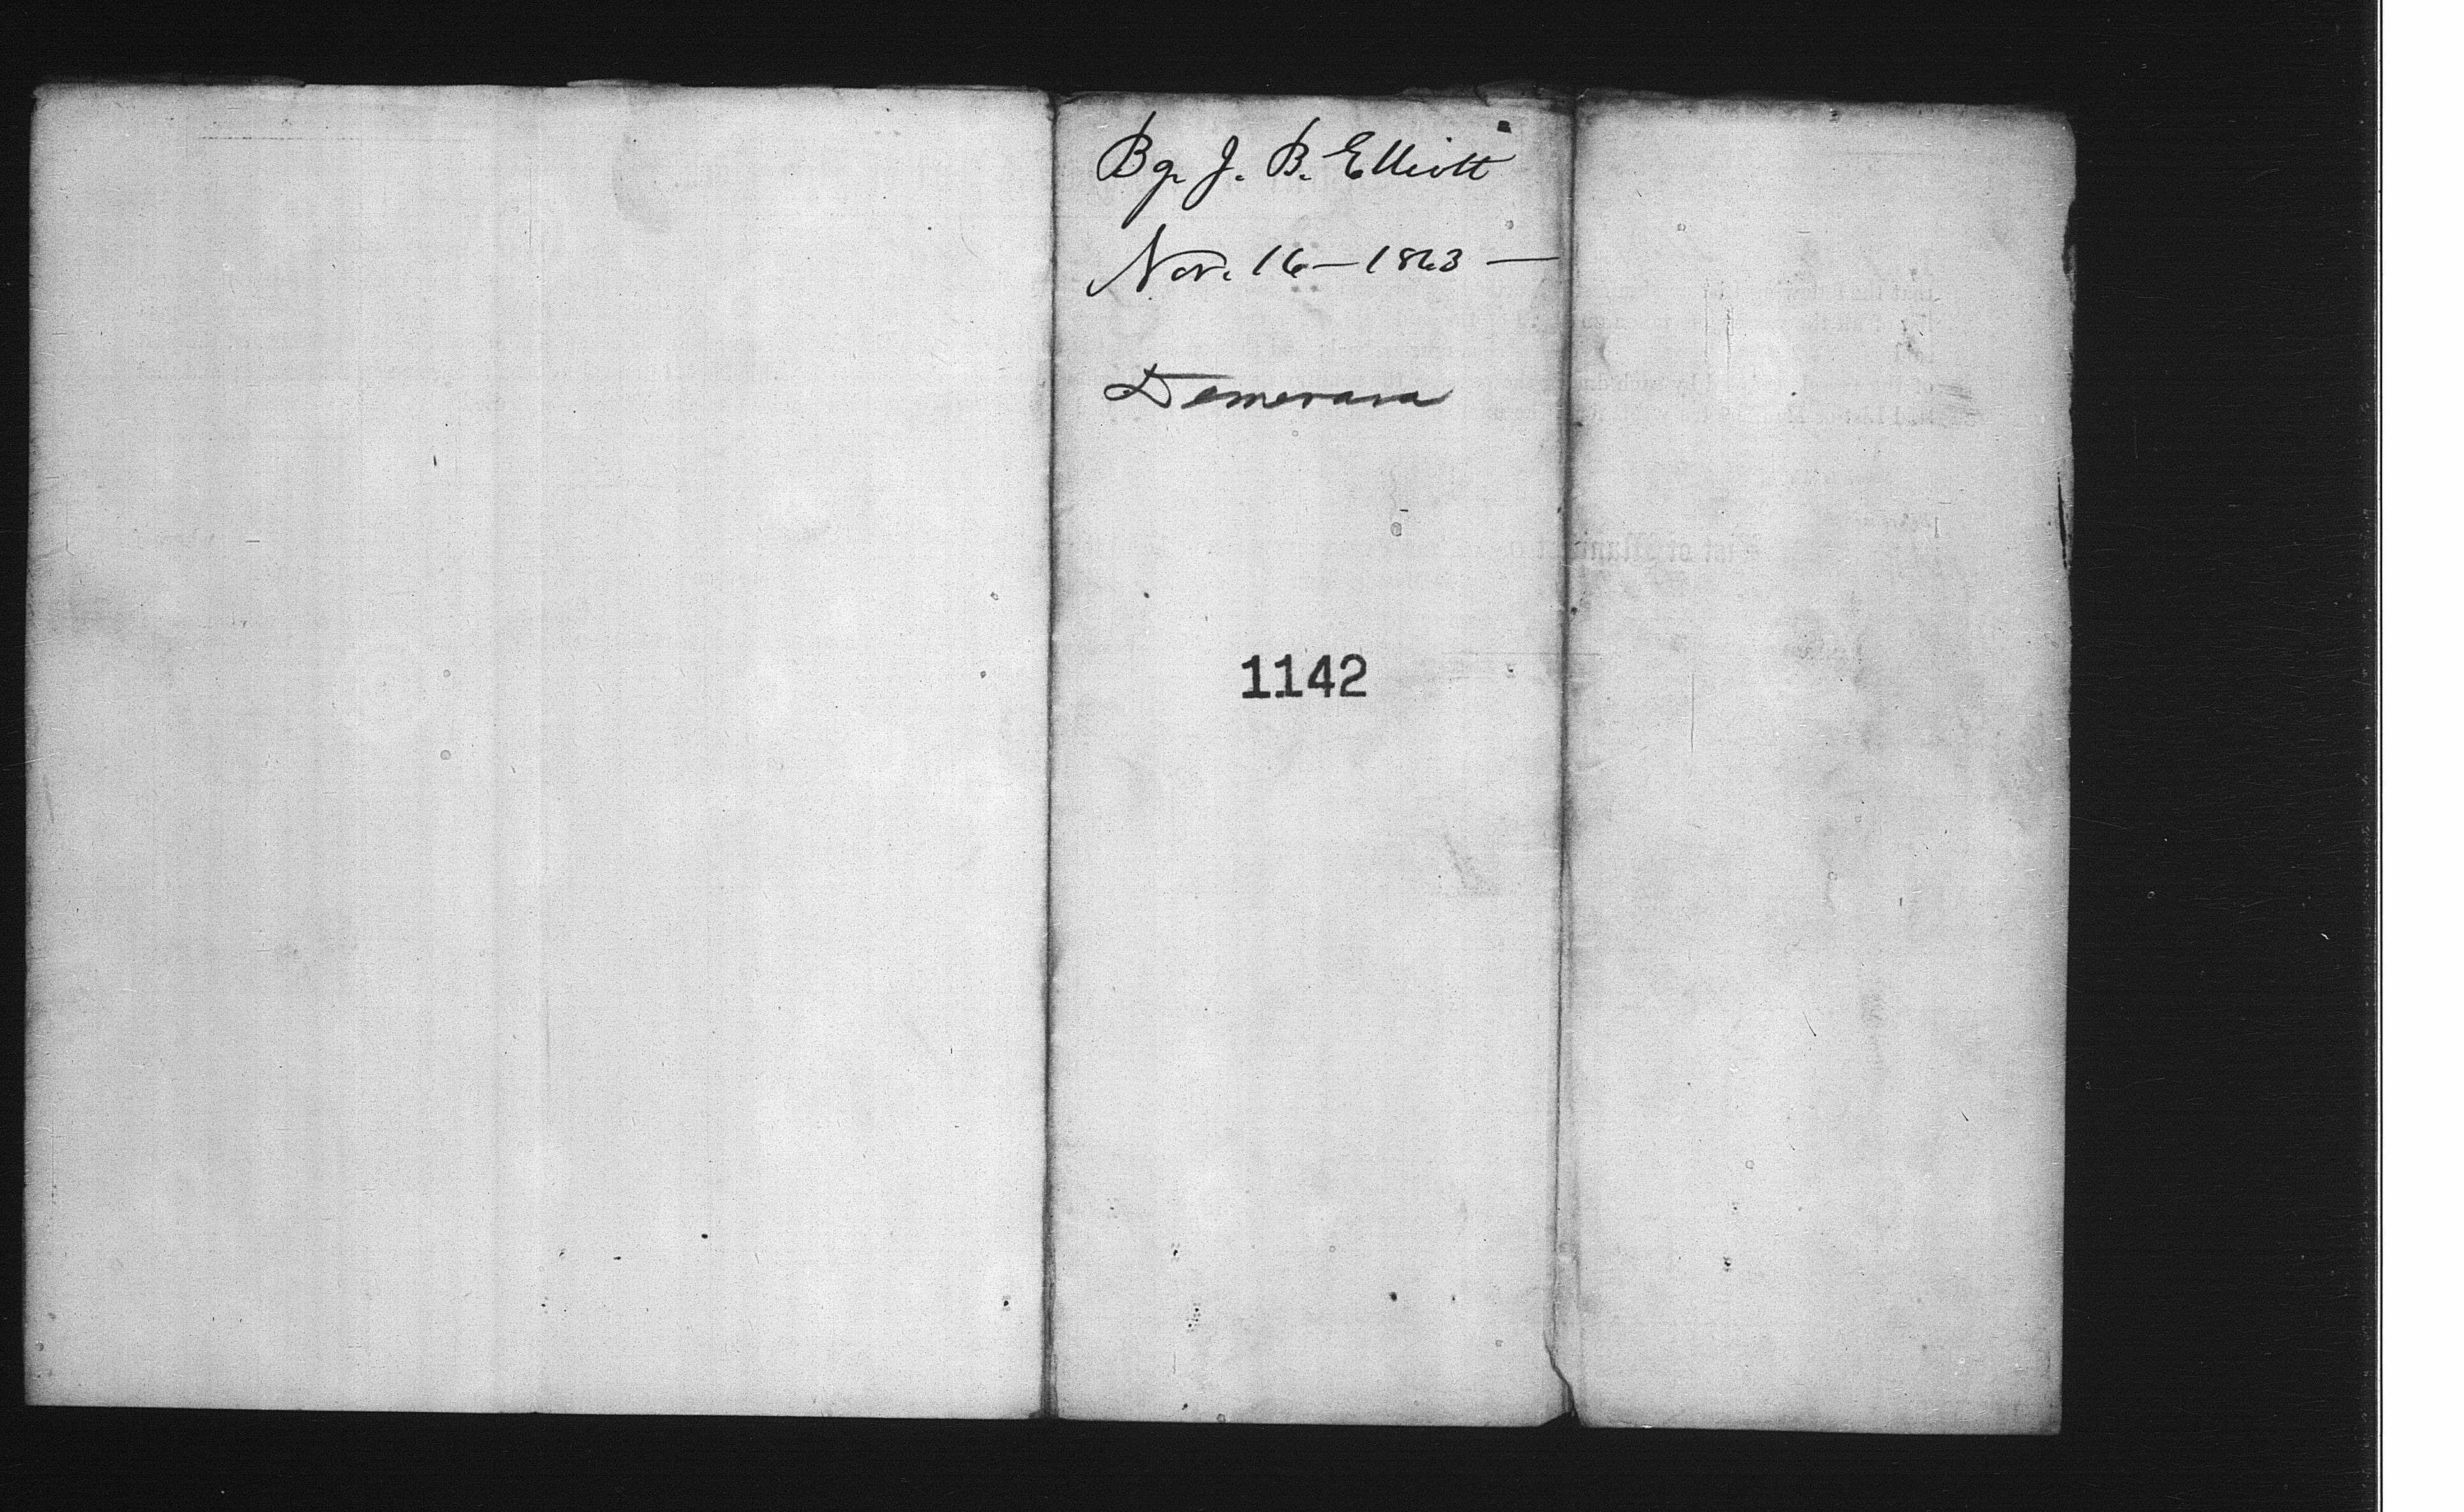 Bg. J. B. Elliott
Nov. 16 — 1863 —
Demerara
1142